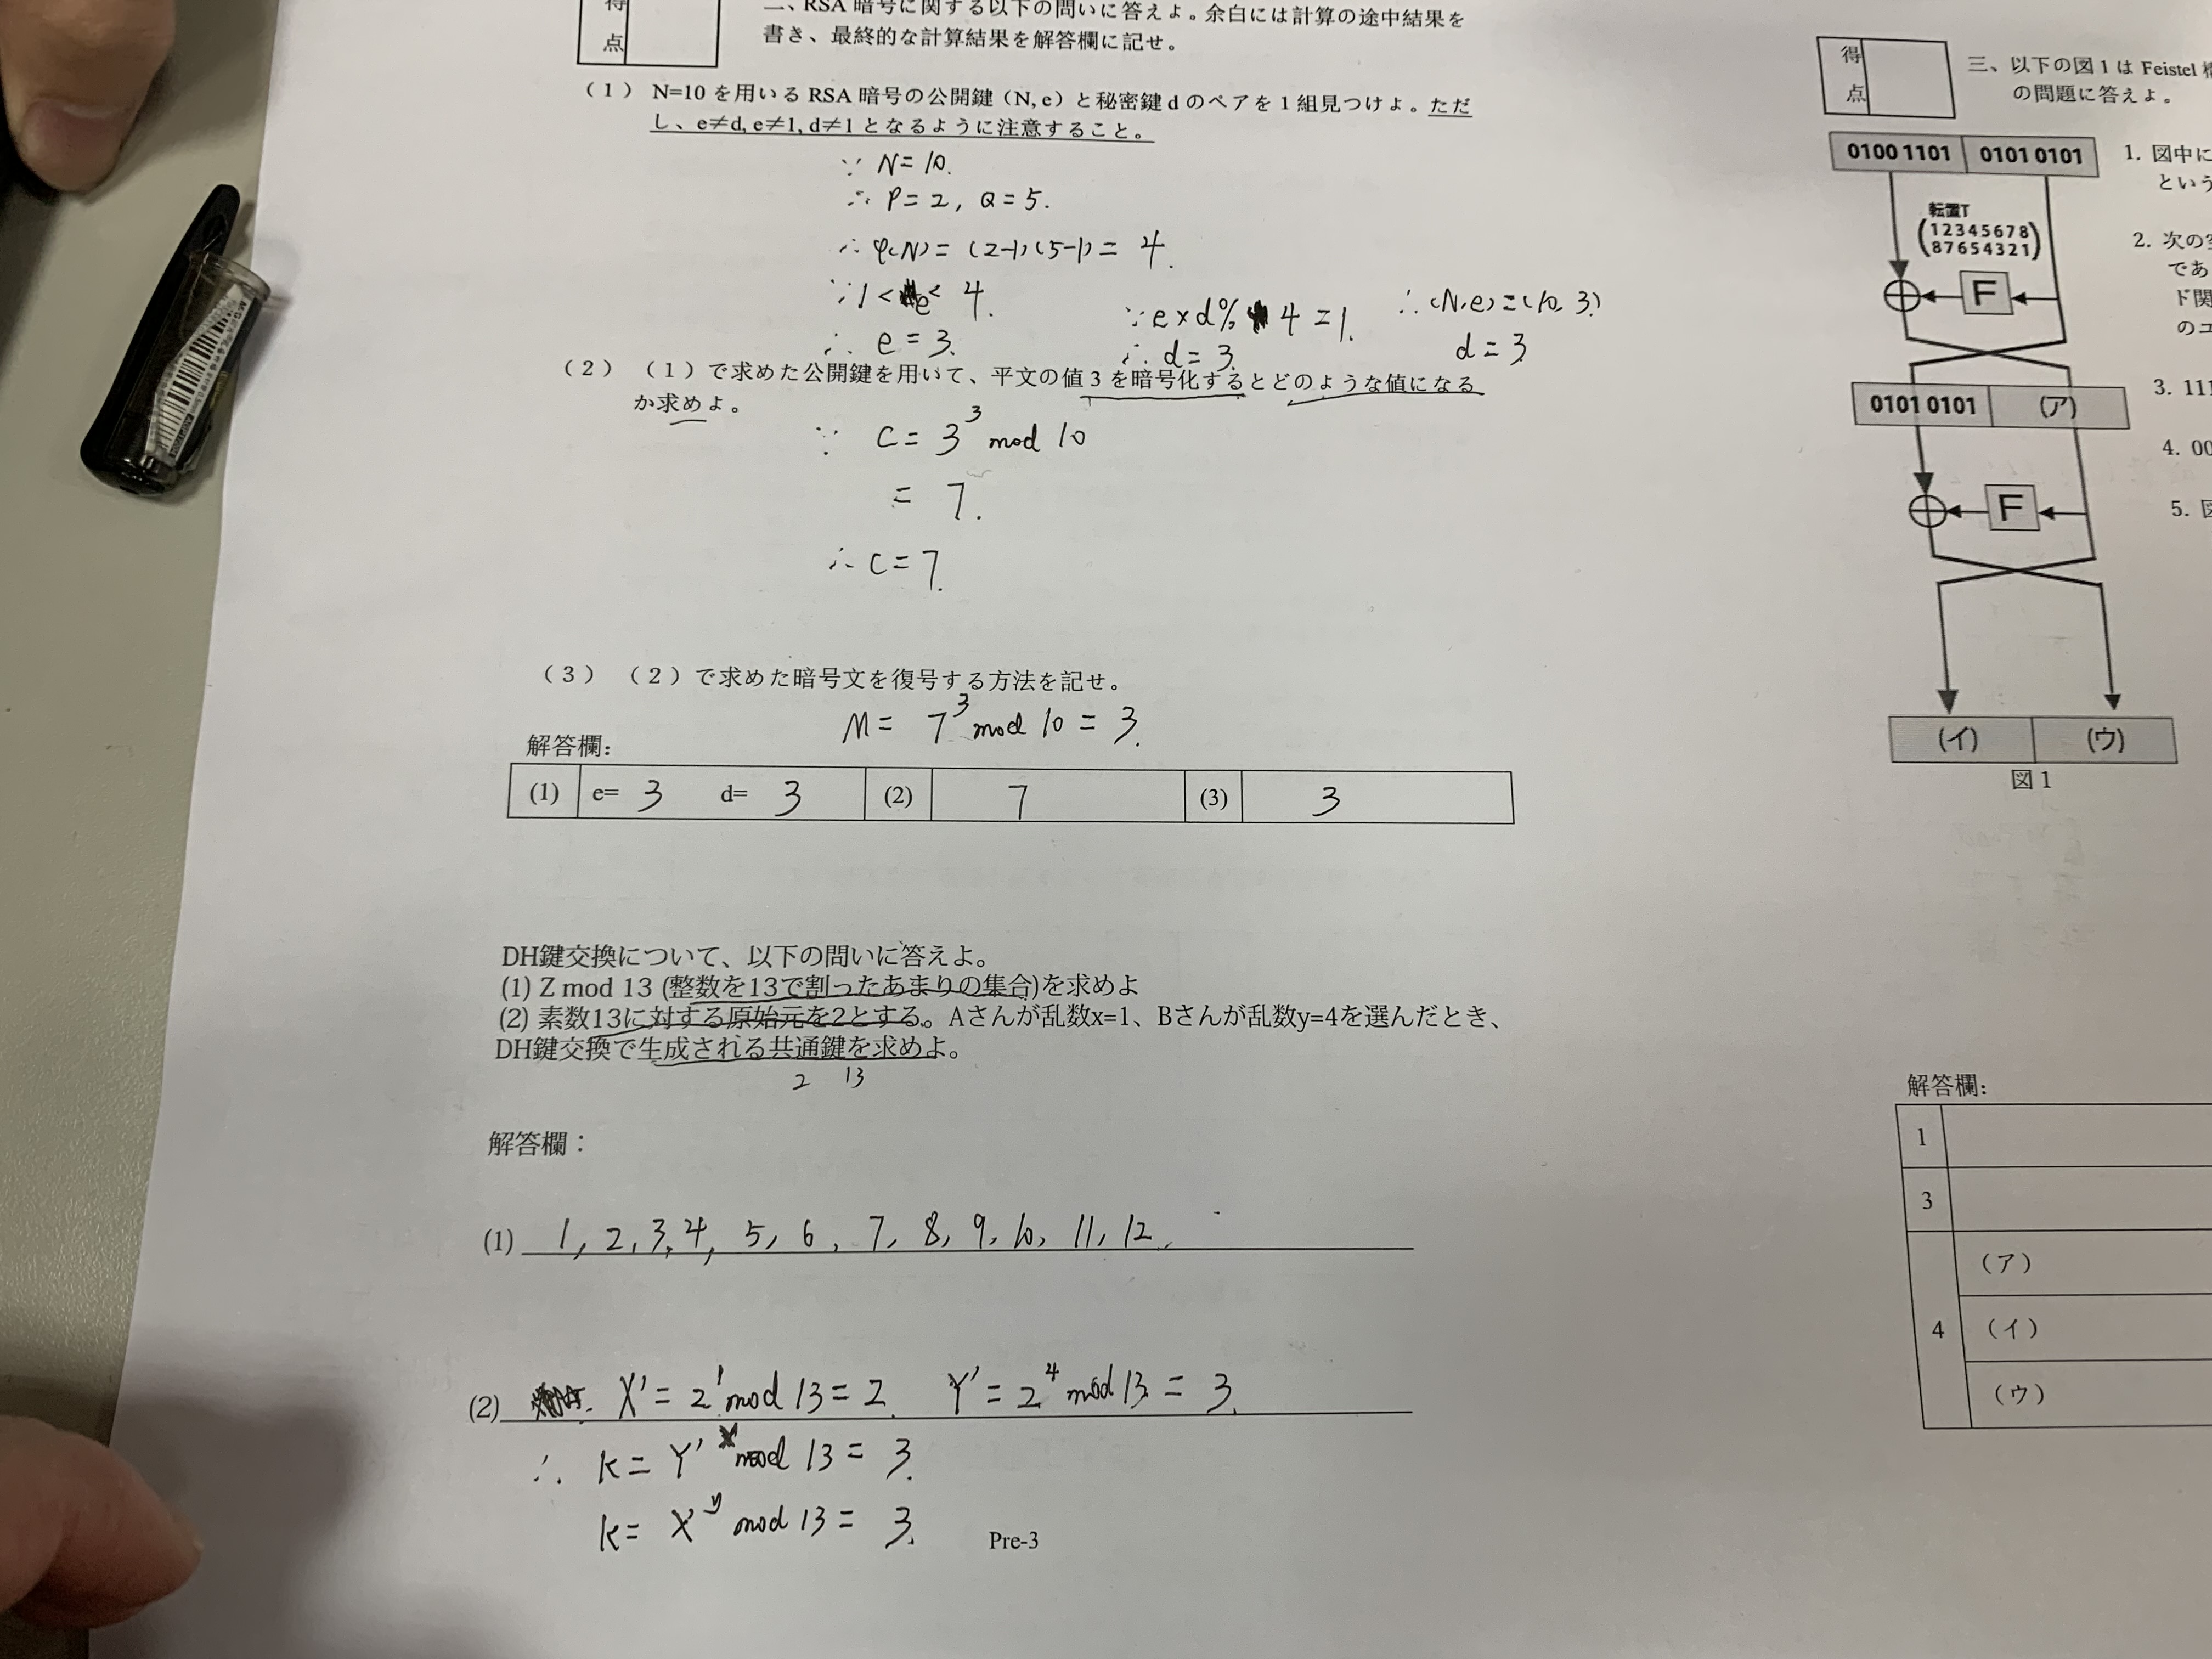 得
点
二、RSA 暗号に関する以下の問いに答えよ。余白には計算の途中結果を
書き、最終的な計算結果を解答欄に記せ。
(1) N=10 を用いる RSA 暗号の公開鍵（N, e）と秘密鍵 d のペアを 1 組見つけよ。ただ
し、e≠d, e≠1, d≠1 となるように注意すること。
∵ N=10.
∴ P=2, Q=5.
∴ φ(N)=(2-1)(5-1)= 4.
∵ 1<e<4.
∴ e=3.
∵ e×d%4=1.
∴ d=3.
∴ (N.e)=(10.3)
d=3
(2) （1）で求めた公開鍵を用いて、平文の値 3 を暗号化するとどのような値になる
か求めよ。
∵ C= 3³ mod 10
= 7.
∴ C=7.
(3) （2）で求めた暗号文を復号する方法を記せ。
M= 7³ mod 10 = 3.
解答欄:
(1) e= 3 d= 3 (2) 7 (3) 3
DH鍵交換について、以下の問いに答えよ。
(1) Z mod 13 (整数を13で割ったあまりの集合)を求めよ
(2) 素数13に対する原始元を2とする。Aさんが乱数x=1、Bさんが乱数y=4を選んだとき、
DH鍵交換で生成される共通鍵を求めよ。
2 13
解答欄：
(1) 1, 2, 3, 4, 5, 6, 7, 8, 9, 10, 11, 12.
(2) X'= 2¹ mod 13 = 2. Y'= 2⁴ mod 13 = 3.
∴ K= Y'ˣ mod 13 = 3.
K= Xʸ mod 13 = 3.
Pre-3
得
点
三、以下の図 1 は Feistel
の問題に答えよ。
0100 1101 0101 0101
転置T
(12345678
87654321)
F
0101 0101 (ア)
F
(イ) (ウ)
図 1
1. 図中に
という
2. 次の
であ
ド関
のユ
3. 111
4. 00
5. 図
解答欄:
1
3
4
（ア）
（イ）
（ウ）